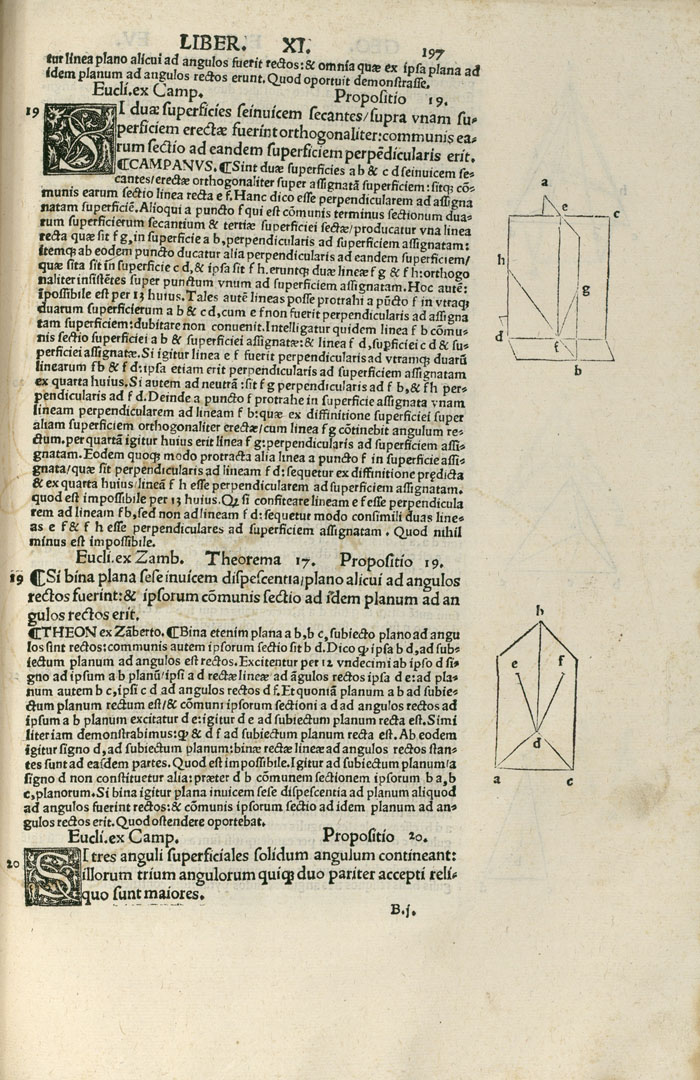 LIBER. XI. 197
tur linea plano alicui ad angulos fuerit rectos:& omnia quæ ex ipsa plana ad
idem planum ad angulos rectos erunt. Quod oportuit demonstrasse.
Eucli.ex Camp. Propositio 19.
19 SI duæ superficies seinuicem secantes/supra vnam su⸗
perficiem erectæ fuerint orthogonaliter:communis ea⸗
rum sectio ad eandem superficiem perpēdicularis erit.
¶CAMPANVS. ¶Sint duæ superficies a b & c d seinuicem se⸗
cantes/erectæ orthogonaliter super assignatā superficiem: sitq; cō⸗
munis earum sectio linea recta e f. Hanc dico esse perpendicularem ad assigna
natam superficiē. Alioqui a puncto f qui est cōmunis terminus sectionum dua⸗
rum superficierum secantium & tertiæ superficiei sectæ/producatur vna linea
recta quæ sit f g, in superficie a b, perpendicularis ad superficiem assignatam:
itemq; ab eodem puncto ducatur alia perpendicularis ad eandem superficiem/
quæ sita sit in superficie c d,& ipsa sit f h. eruntq; duæ lineæ f g & f h:orthogo
naliter insistētes super punctum vnum ad superficiem assignatam. Hoc autē:
īpossibile est per 13 huius. Tales autē lineas posse protrahi a pūcto f in vtraq;
duarum superficierum a b & c d, cum e f non fuerit perpendicularis ad assigna
tam superficiem:dubitare non conuenit. Intelligatur quidem linea f b cōmu⸗
nis sectio superficiei a b & superficiei assignatæ:& linea f d, superficiei c d & su⸗
perficiei assignatæ. Si igitur linea e f fuerit perpendicularis ad vtramq; duarū
linearum f b & f d:ipsa etiam erit perpendicularis ad superficiem assignatam
ex quarta huius. Si autem ad neutrā :sit f g perpendicularis ad f b, & f h per⸗
pendicularis ad f d. Deinde a puncto f protrahe in superficie assignata vnam
lineam perpendicularem ad lineam f b: quæ ex diffinitione superficiei super
aliam superficiem orthogonaliter erectæ/cum linea f g cōtinebit angulum re⸗
ctum. per quartā igitur huius erit linea f g: perpendicularis ad superficiem assi⸗
gnatam. Eodem quoq; modo protracta alia linea a puncto f in superficie assi⸗
gnata/quæ sit perpendicularis ad lineam f d: sequetur ex diffinitione prędicta
& ex quarta huius lineā f h esse perpendicularem ad superficiem assignatam.
quod est impossibile per 13 huius. Q; si confiteare lineam e f esse perpendicula
rem ad lineam f b, sed non ad lineam f d: sequetur modo consimili duas line⸗
as e f & f h esse perpendiculares ad superficiem assignatam . Quod nihil
minus est impossibile.
Eucli.ex Zamb. Theorema 17. Propositio 19.
19 ¶Si bina plana sese inuicem dispescentia/plano alicui ad angulos
rectos fuerint:& ipsorum cōmunis sectio ad idem planum ad an
gulos rectos erit.
¶THEON ex Zāberto. ¶Bina etenim plana a b, b c, subiecto plano ad angu
los sint rectos:communis autem ipsorum sectio sit b d. Dico q; ipsa b d, ad sub⸗
iectum planum ad angulos est rectos. Excitentur per 12 vndecimi ab ipso d si⸗
gno ad ipsum a b planū/ipsi a d rectæ lineæ ad āgulos rectos ipsa d e: ad pla⸗
num autem b c, ipsi c d ad angulos rectos d f. Et quoniā planum a b ad subie⸗
ctum planum rectum est/& cōmuni ipsorum sectioni a d ad angulos rectos ad
ipsum a b planum excitatur d e: igitur d e ad subiectum planum recta est. Simi
liter iam demonstrabimus: q; & d f ad subiectum planum recta est. Ab eodem
igitur signo d, ad subiectum planum: binæ rectæ lineæ ad angulos rectos stan⸗
tes sunt ad easdem partes. Quod est impossibile. Igitur ad subiectum planum/a
signo d non constituetur alia: præter d b comunem sectionem ipsorum b a, b
c, planorum. Si bina igitur plana inuicem sese dispescentia ad planum aliquod
ad angulos fuerint rectos:& cōmunis ipsorum sectio ad idem planum ad an⸗
gulos rectos erit. Quod ostendere oportebat.
Eucli.ex Camp. Propositio 20.
20 SI tres anguli superficiales solidum angulum contineant:
illorum trium angulorum quiq; duo pariter accepti reli⸗
quo sunt maiores.
B.j.
a
e
c
h
g
d
f
b
h
e f
d
a c